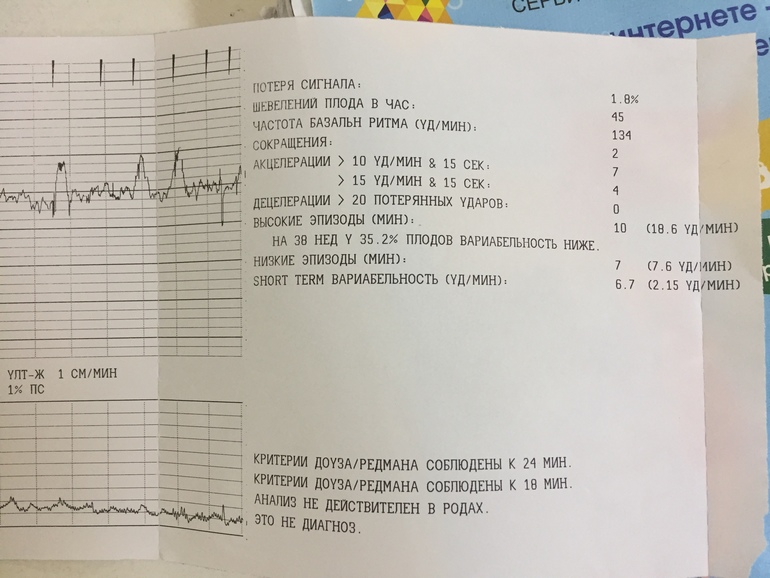 СЕРВИ
интернете -
ПОТЕРЯ СИГНАЛА: 1.8%
ШЕВЕЛЕНИЙ ПЛОДА В ЧАС: 45
ЧАСТОТА БАЗАЛЬН РИТМА (УД/МИН): 134
СОКРАЩЕНИЯ: 2
АКЦЕЛЕРАЦИИ > 10 УД/МИН & 15 СЕК: 7
> 15 УД/МИН & 15 СЕК: 4
ДЕЦЕЛЕРАЦИИ > 20 ПОТЕРЯННЫХ УДАРОВ: 0
ВЫСОКИЕ ЭПИЗОДЫ (МИН): 10 (18.6 УД/МИН)
НА 38 НЕД У 35.2% ПЛОДОВ ВАРИАБЕЛЬНОСТЬ НИЖЕ.
НИЗКИЕ ЭПИЗОДЫ (МИН): 7 (7.6 УД/МИН)
SHORT TERM ВАРИАБЕЛЬНОСТЬ (УД/МИН): 6.7 (2.15 УД/МИН)
УЛТ-Ж 1 СМ/МИН
1% ПС
КРИТЕРИИ ДОУЗА/РЕДМАНА СОБЛЮДЕНЫ К 24 МИН.
КРИТЕРИИ ДОУЗА/РЕДМАНА СОБЛЮДЕНЫ К 18 МИН.
АНАЛИЗ НЕ ДЕЙСТВИТЕЛЕН В РОДАХ.
ЭТО НЕ ДИАГНОЗ.